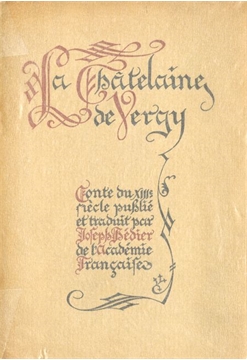 La Châtelaine
de Vergy
Conte du XIIIe
siècle publié
et traduit par
Joseph Bédier
de l'Académie
Française